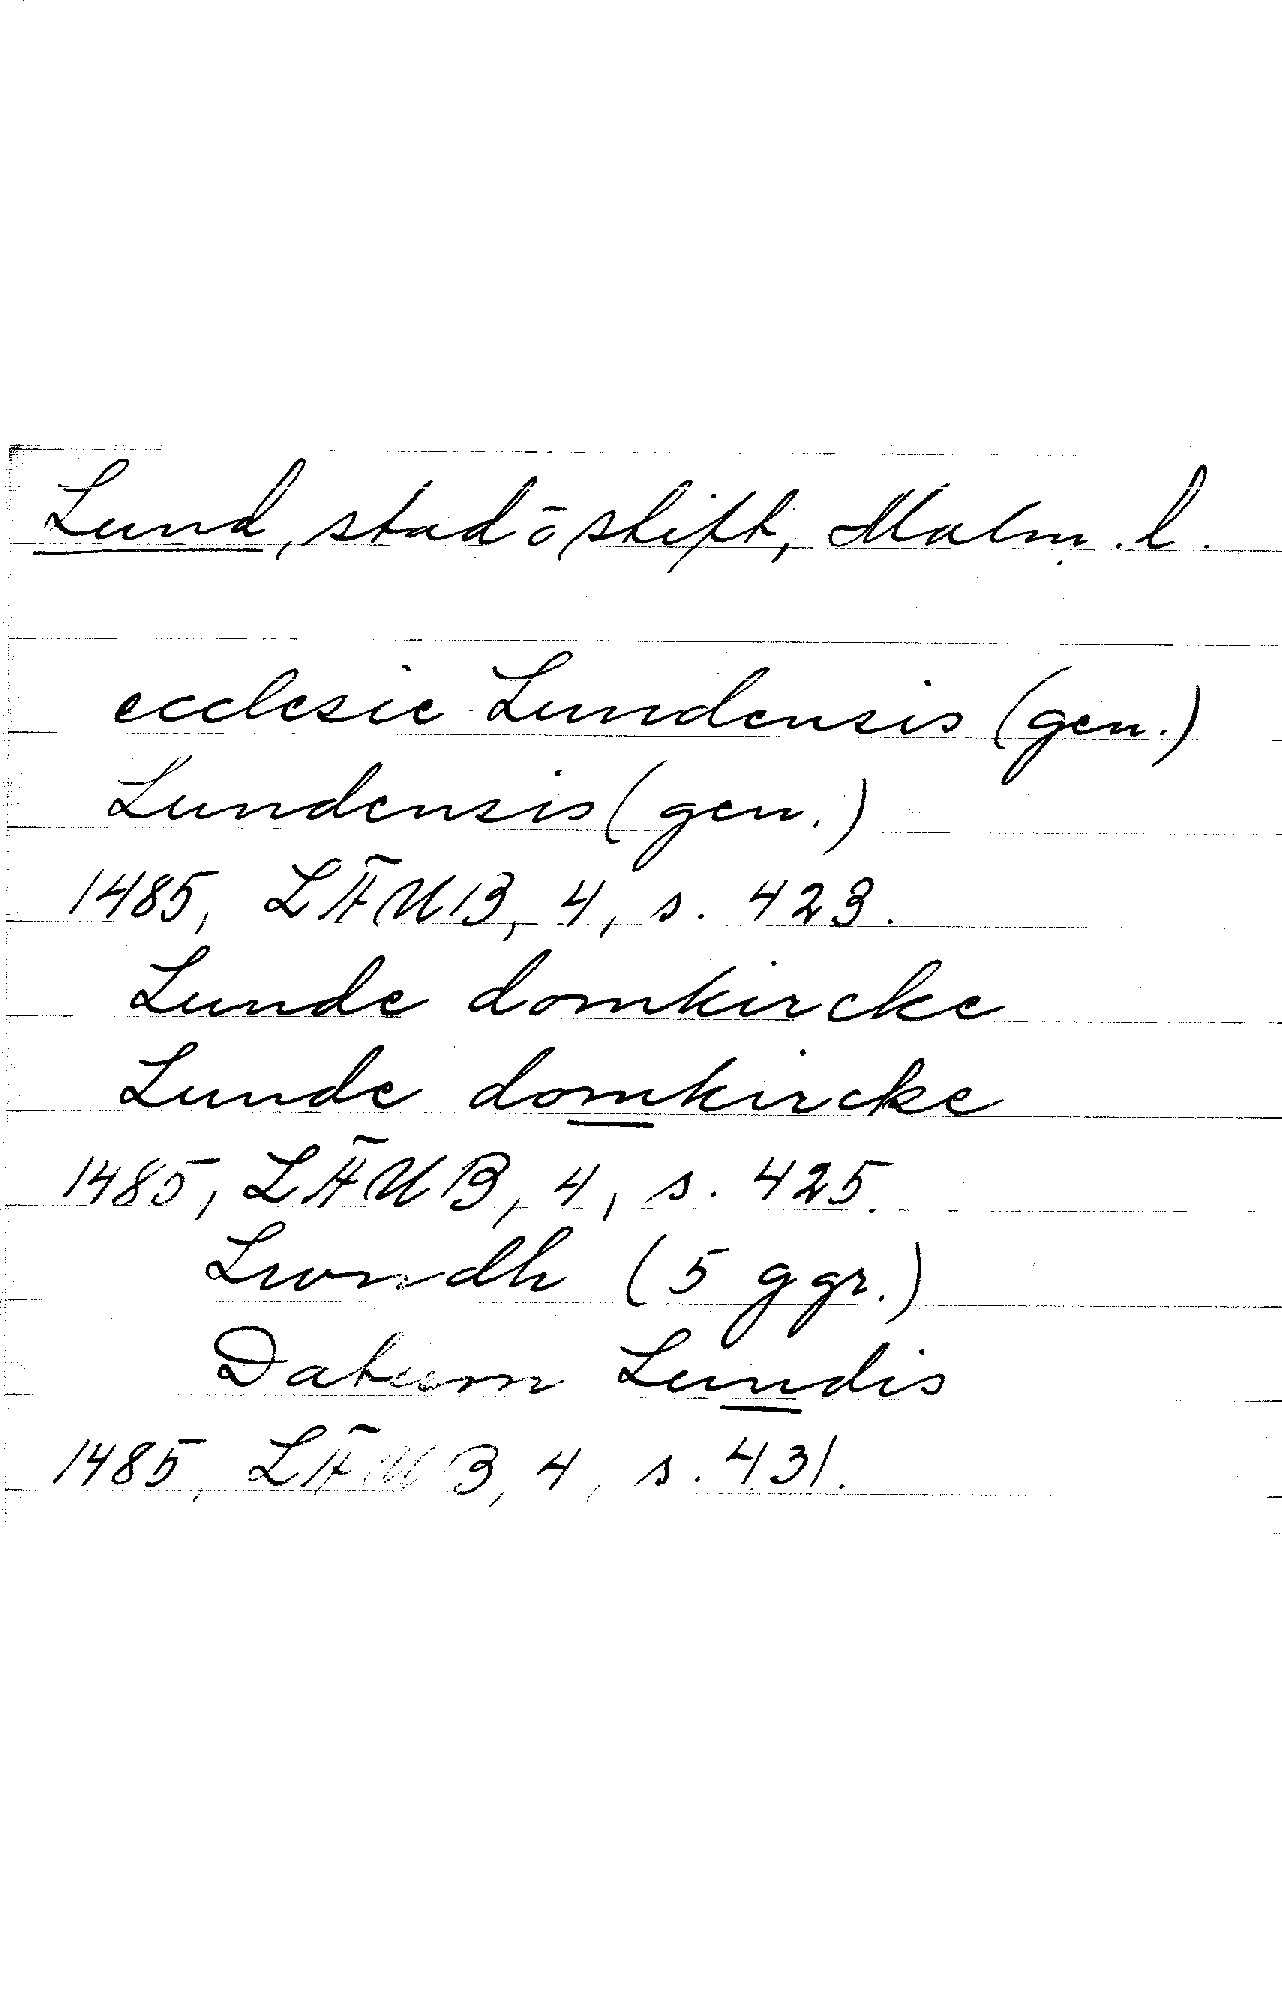 Lund, stad ō stift, Malm. l.
ecclesie Lundensis (gen.)
Lundensis (gen.)
1485, LÄUB, 4, s. 423.
Lunde domkircke
Lunde domkircke
1485, LÄUB, 4, s. 425.
Lwndh (5 ggr.)
Datum Lundis
1485, LÄUB, 4, s. 431.